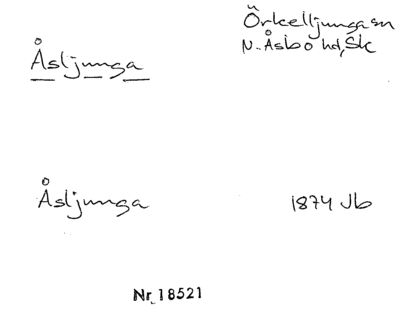 Örkelljunga sn
Åsljunga
N. Åsbo hd, Sk
Åsljunga
1874 Jb
Nr 18521